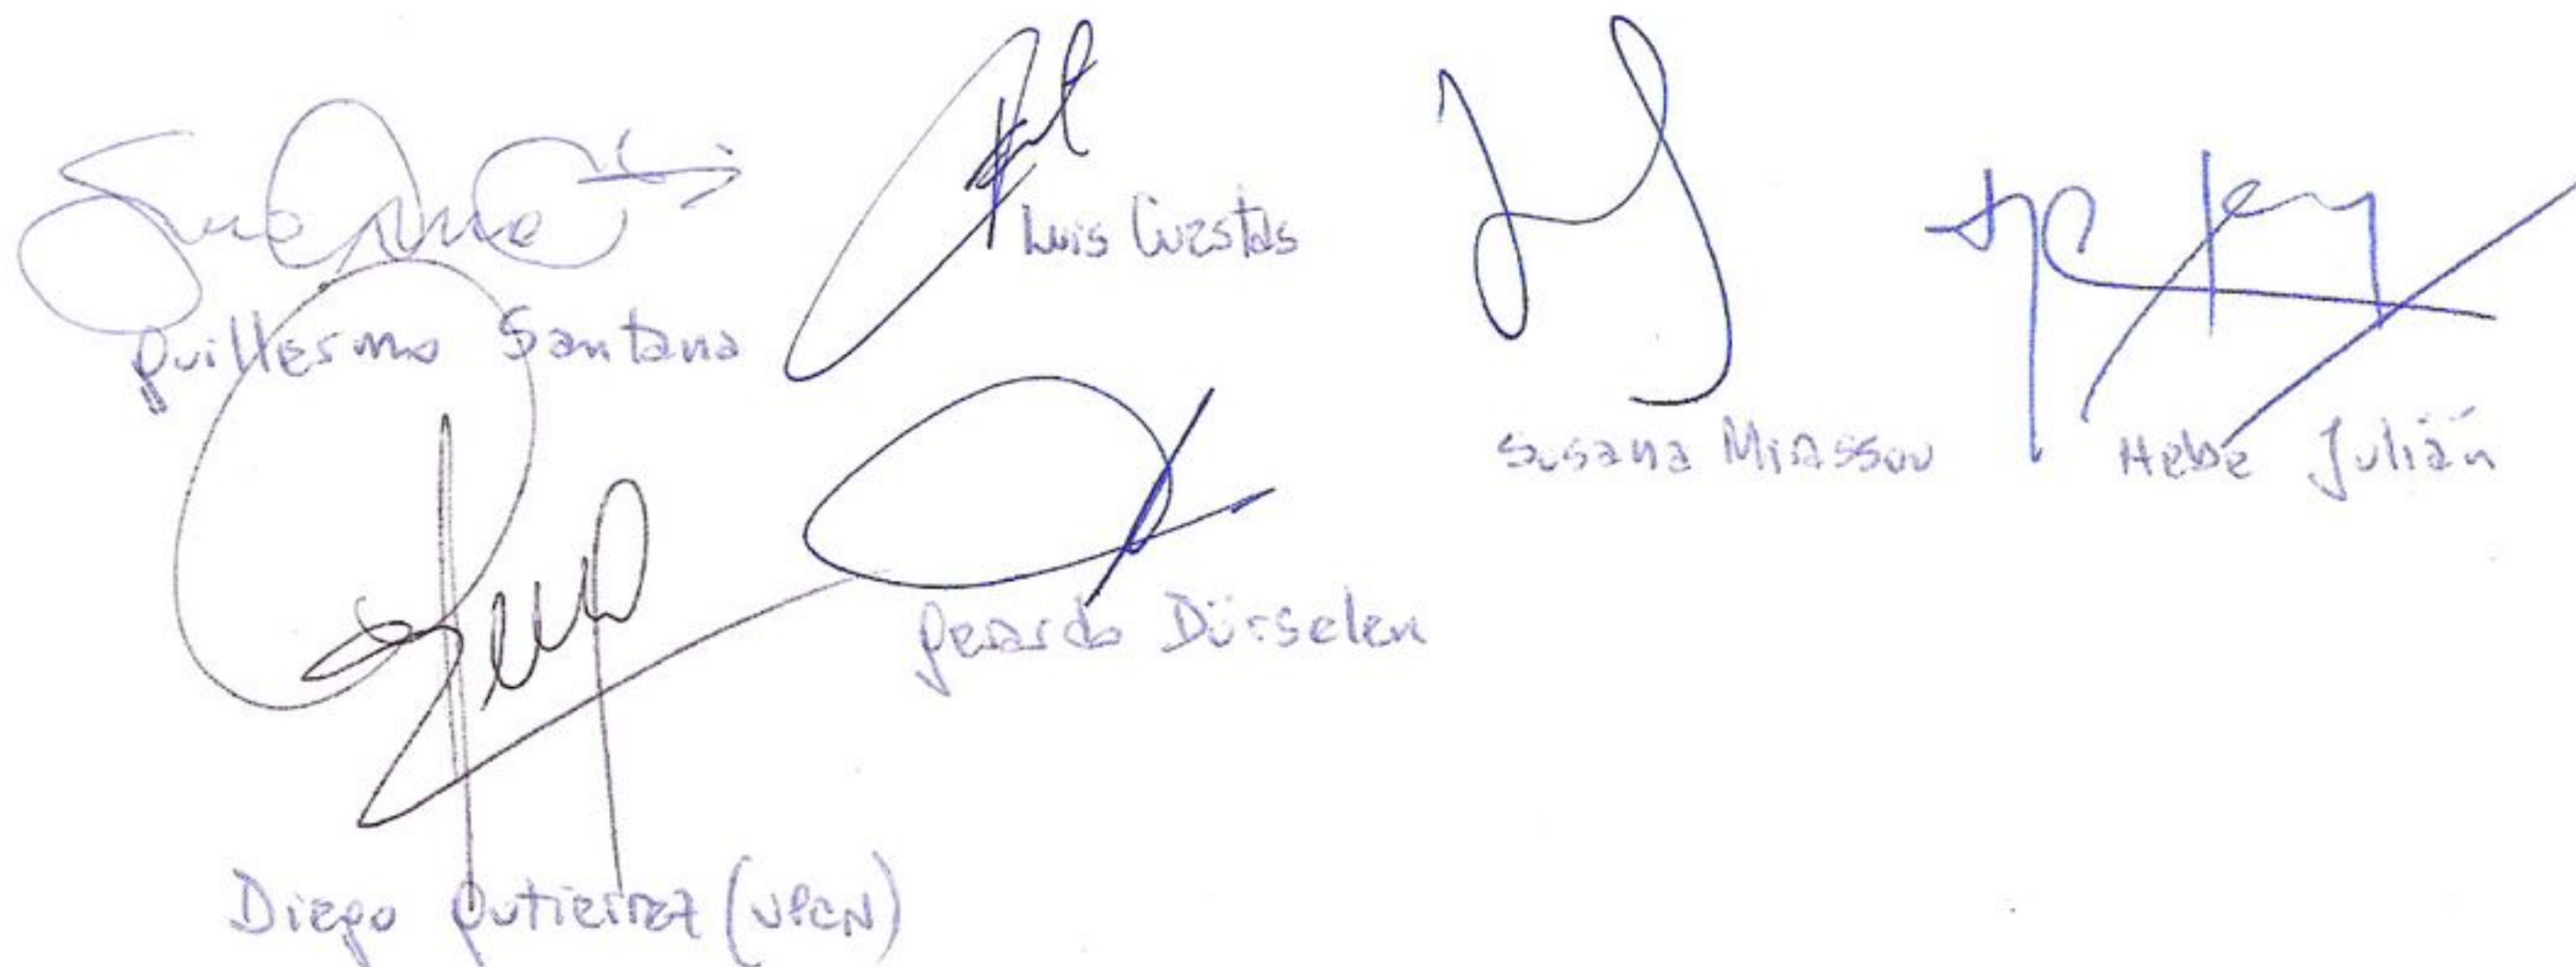 Guillermo Santana
Luis Cuestas
Susana Miassou
Hebe Julián
Gerardo Dürselen
Diego Gutierrez (UPCN)